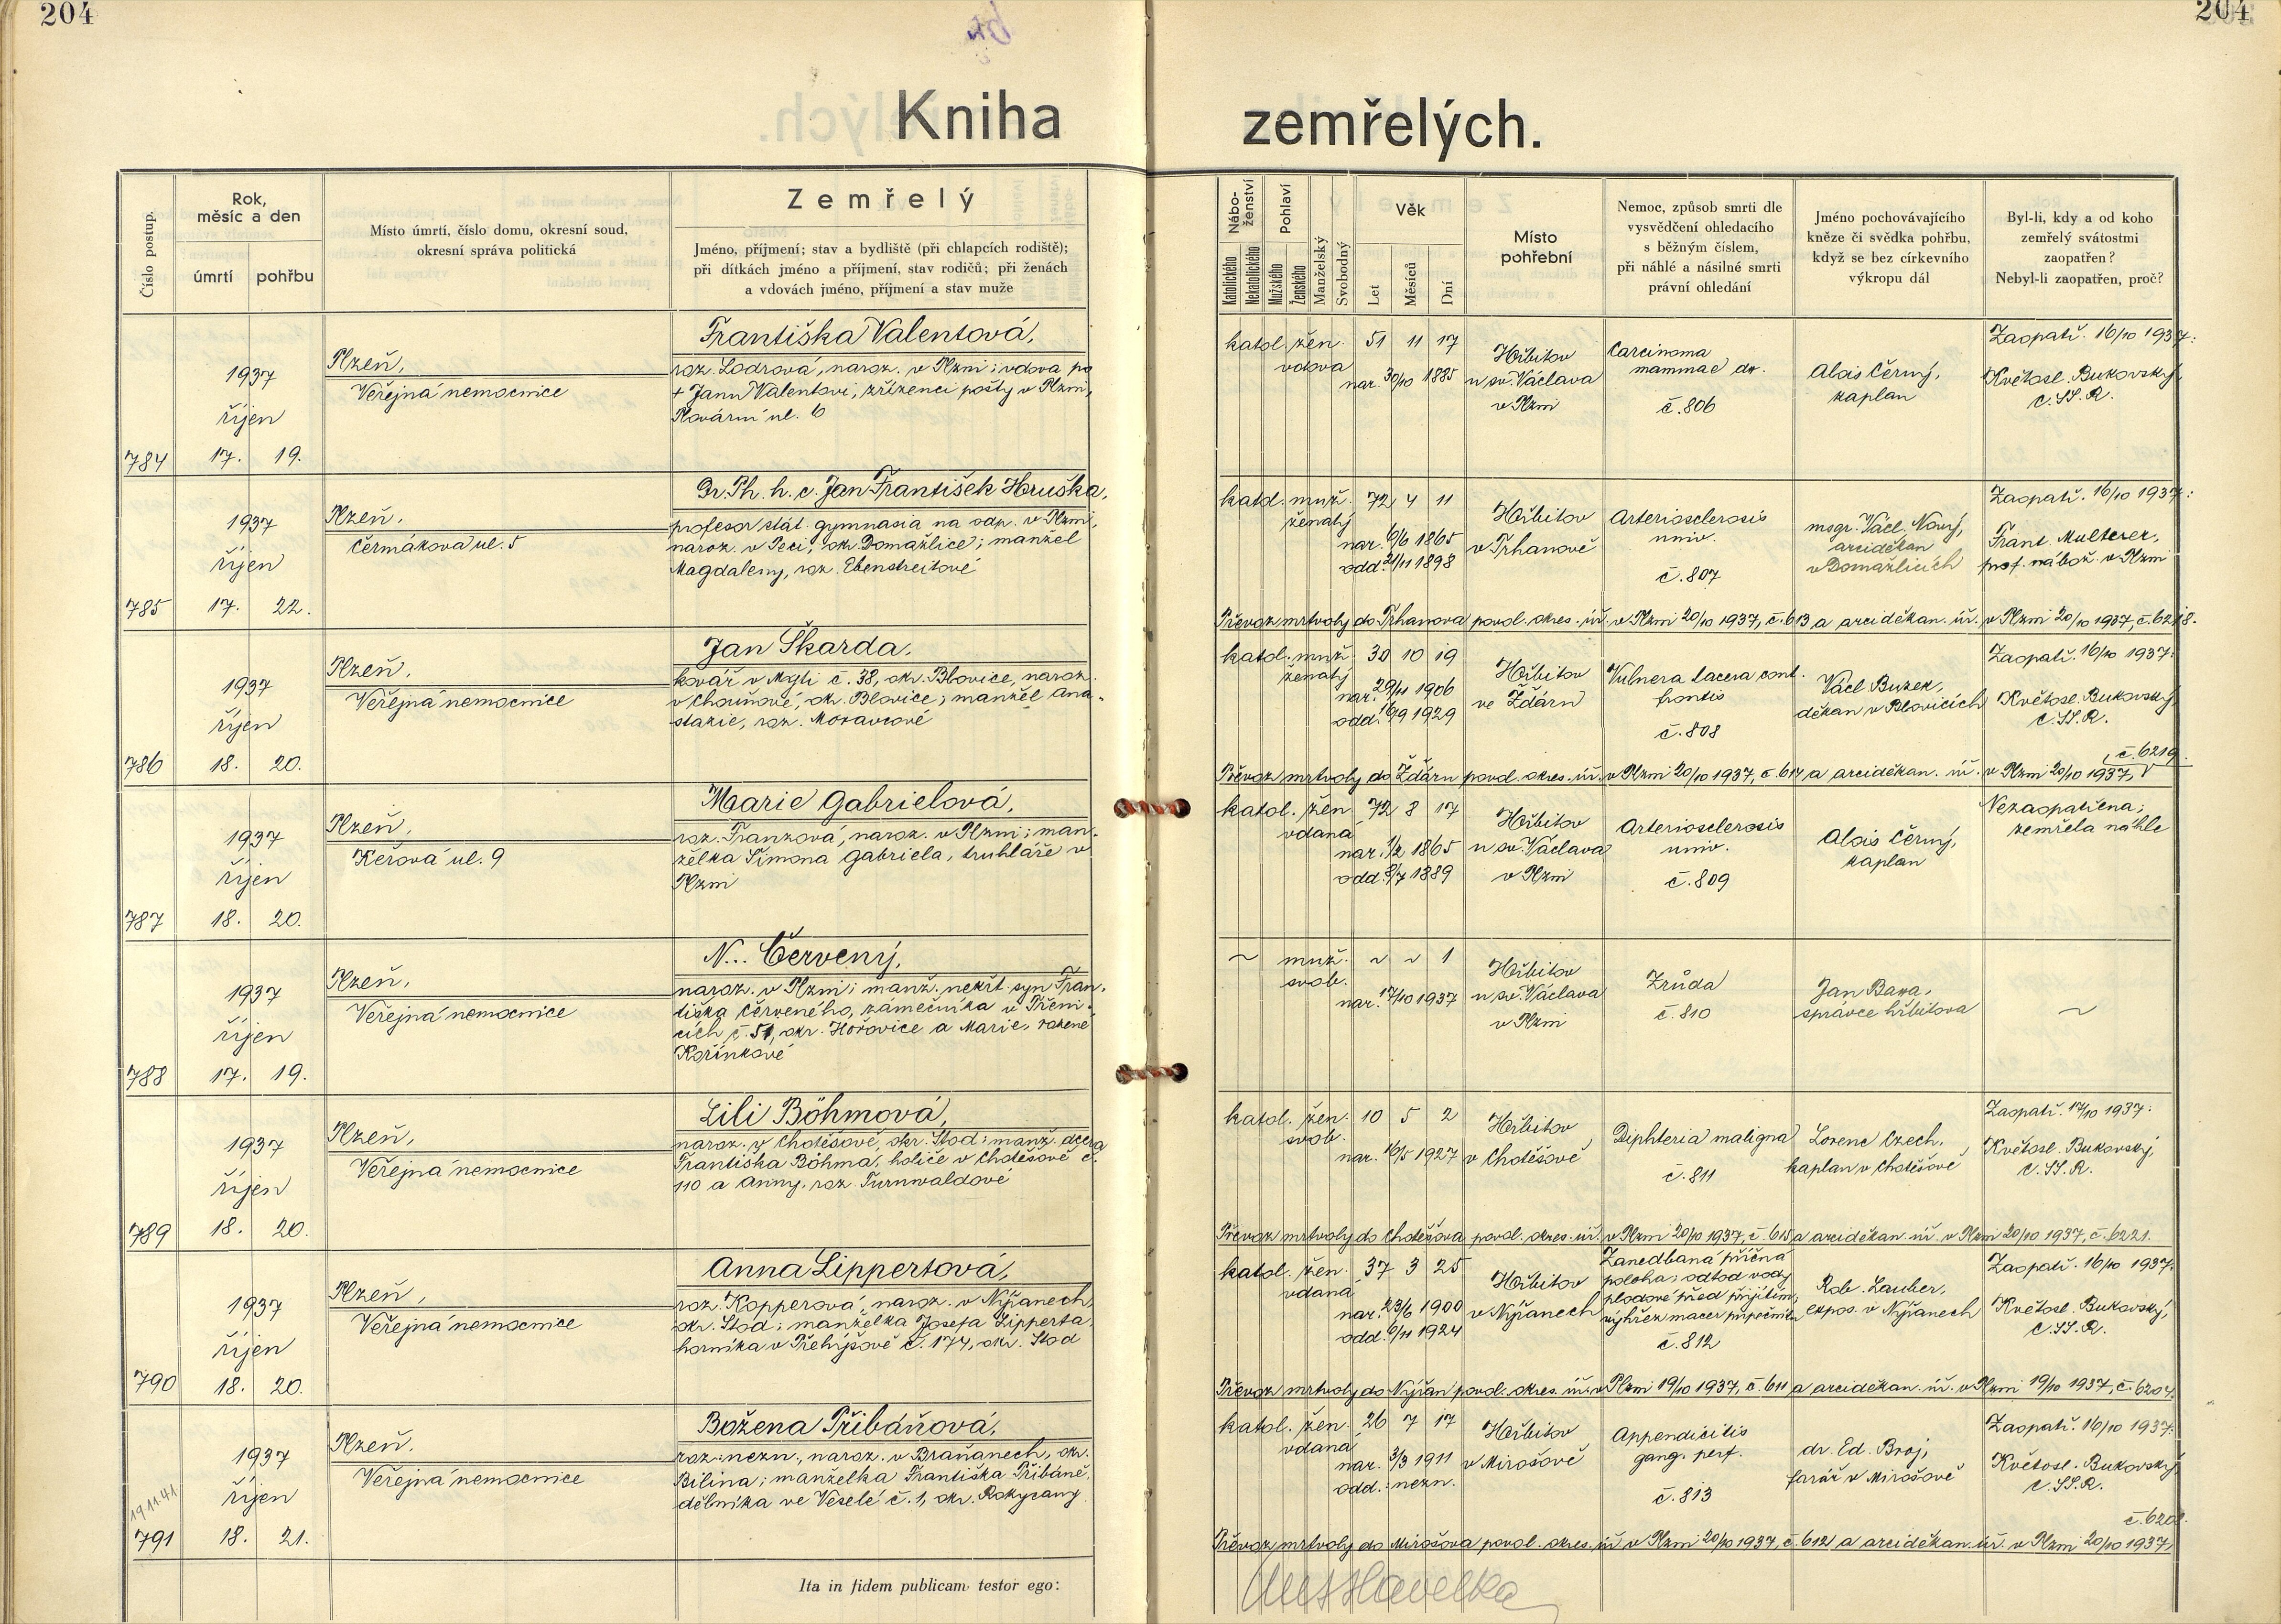 204
204
Kniha zemřelých.
Číslo postup.
Rok, měsíc a den
úmrtí
pohřbu
Místo úmrtí, číslo domu, okresní soud,
okresní správa politická
Zemřelý
Jméno, příjmení; stav a bydliště (při chlapcích rodiště);
při dítkách jméno a příjmení, stav rodičů; při ženách
a vdovách jméno, příjmení a stav muže
Nábo-
ženství
Katolického
Nekatolického
Pohlaví
Mužského
Ženského
Manželský
Svobodný
Věk
Let
Měsíců
Dní
Místo
pohřební
Nemoc, způsob smrti dle
vysvědčení ohledacího
s běžným číslem,
při náhlé a násilné smrti
právní ohledání
Jméno pochovávajícího
kněze či svědka pohřbu,
když se bez církevního
výkropu dál
Byl-li, kdy a od koho
zemřelý svátostmi
zaopatřen?
Nebyl-li zaopatřen, proč?
784
1937
říjen
17. 19.
Plzeň,
Veřejná nemocnice
Františka Valentová,
roz. Lodrová, naroz. v Plzni; vdova po
+ Janu Valentovi, zřízenci pošty v Plzni,
Plovární ul. 6
katol. žen. 51 11 17
vdova
nar. 30/10 1885
Hřbitov
u sv. Václava
v Plzni
Carcinoma
mammae dx.
č. 806
Alois Černý,
kaplan
Zaopatř. 16/10 1937:
Květosl. Bukovský,
C.SS.R.
785
1937
říjen
17. 22.
Plzeň,
Čermákova ul. 5
Dr. Ph. h. c. Jan František Hruška,
profesor stát. gymnasia na odp. v Plzni,
naroz. v Peci, okr. Domažlice; manžel
Magdaleny, roz. Ebenstreitové
katol. muž. 72 4 11
ženatý
nar. 6/6 1865
odd. 21/11 1898
Hřbitov
v Trhanově
Arteriosclerosis
univ.
č. 807
msgr. Václ. Nový,
arciděkan
v Domažlicích
Zaopatř. 16/10 1937:
Frant. Multerer,
prof. nábož. v Plzni
Převoz mrtvoly do Trhanova povol. okres. úř. v Plzni 20/10 1937, č. 613 a arciděkan. úř. v Plzni 20/10 1937, č. 6218.
786
1937
říjen
18. 20.
Plzeň,
Veřejná nemocnice
Jan Škarda,
kovář v Mýti č. 38, okr. Blovice, naroz.
v Chouňově, okr. Blovice; manžel Ana-
stazie, roz. Moravcové
katol. muž. 30 10 19
ženatý
nar. 29/11 1906
odd. 16/9 1929
Hřbitov
ve Ždáru
Vulnera lacera cont.
frontis
č. 808
Václ. Buzek,
děkan v Blovicích
Zaopatř. 16/10 1937:
Květosl. Bukovský,
C.SS.R.
č. 6219.
Převoz mrtvoly do Ždáru povol. okres. úř. v Plzni 20/10 1937, č. 614 a arciděkan. úř. v Plzni 20/10 1937,
787
1937
říjen
18. 20.
Plzeň,
Keřová ul. 9
Marie Gabrielová,
roz. Franzová, naroz. v Plzni; man-
želka Šimona Gabriela, truhláře v
Plzni
katol. žen. 72 8 17
vdaná
nar. 1/2 1865
odd. 8/7 1889
Hřbitov
u sv. Václava
v Plzni
Arteriosclerosis
univ.
č. 809
Alois Černý,
kaplan
Nezaopatřena;
zemřela náhle
788
1937
říjen
17. 19.
Plzeň,
Veřejná nemocnice
N... Červený,
naroz. v Plzni; manž. nekřt. syn Fran-
tiška Červeného, zámečníka v Přeni-
cích č. 51, okr. Hořovice a Marie, rozené
Kořínkové
~ muž. ~ ~ 1
svob.
nar. 17/10 1937
Hřbitov
u sv. Václava
v Plzni
Zrůda
č. 810
Jan Bawa,
správce hřbitova
~
789
1937
říjen
18. 20.
Plzeň,
Veřejná nemocnice
Lili Böhmová,
naroz. v Chotěšově, okr. Stod; manž. dcera
Františka Böhma, holiče v Chotěšově č.
110 a Anny, roz. Turnwaldové
katol. žen. 10 5 2
svob.
nar. 16/5 1927
Hřbitov
v Chotěšově
Diphteria maligna
č. 811
Lorenc Czech,
kaplan v Chotěšově
Zaopatř. 17/10 1937:
Květosl. Bukovský,
C.SS.R.
Převoz mrtvoly do Chotěšova povol. okres. úř. v Plzni 20/10 1937, č. 615 a arciděkan. úř. v Plzni 20/10 1937, č. 6221.
790
1937
říjen
18. 20.
Plzeň,
Veřejná nemocnice
Anna Lippertová,
roz. Kopperová, naroz. v Nýřanech,
okr. Stod; manželka Josefa Lipperta,
horníka v Přehýšově č. 174, okr. Stod
katol. žen. 37 3 25
vdaná
nar. 23/6 1900
odd. 6/11 1924
Hřbitov
v Nýřanech
Zanedbaná příčná
poloha; odtod vody
plodové před přijetím;
č. 812
Rob. Lauber,
expos. v Nýřanech
Zaopatř. 16/10 1937:
Květosl. Bukovský,
C.SS.R.
Převoz mrtvoly do Nýřan povol. okres. úř. v Plzni 19/10 1937, č. 611 a arciděkan. úř. v Plzni 19/10 1937, č. 6204.
19.11.41.
791
1937
říjen
18. 21.
Plzeň,
Veřejná nemocnice
Božena Přibáňová,
roz. nezn., naroz. v Braňanech, okr.
Bílina; manželka Františka Přibáně,
dělníka ve Veselé č. 1, okr. Rokycany
katol. žen. 26 7 17
vdaná
nar. 3/3 1911
odd.: nezn.
Hřbitov
v Mirošově
Appendicitis
gang. perf.
č. 813
dr. Ed. Broj,
farář v Mirošově
Zaopatř. 16/10 1937:
Květosl. Bukovský,
C.SS.R.
Převoz mrtvoly do Mirošova povol. okres. úř. v Plzni 20/10 1937, č. 612 a arciděkan. úř. v Plzni 20/10 1937,
Ita in fidem publicam testor ego: